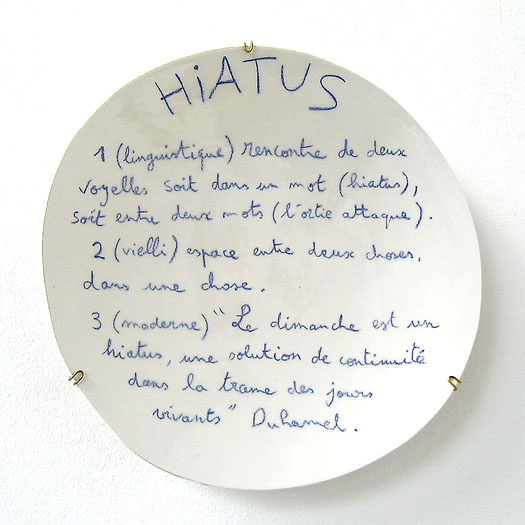 HiATUS
1 (linguistique) rencontre de deux
voyelles soit dans un mot (hiatus),
soit entre deux mots (l'ortie attaque).
2 (vielli) espace entre deux choses,
dans une chose.
3 (moderne) "Le dimanche est un
hiatus, une solution de continuité
dans la trame des jours
vivants" Duhamel.